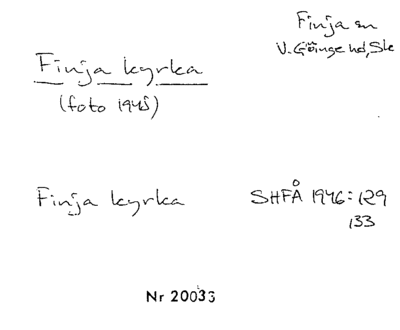 Finja sn
V. Göinge hd, Sk
Finja kyrka
(foto 1945)
Finja kyrka
SHFÅ 1946:129
133
Nr 20033